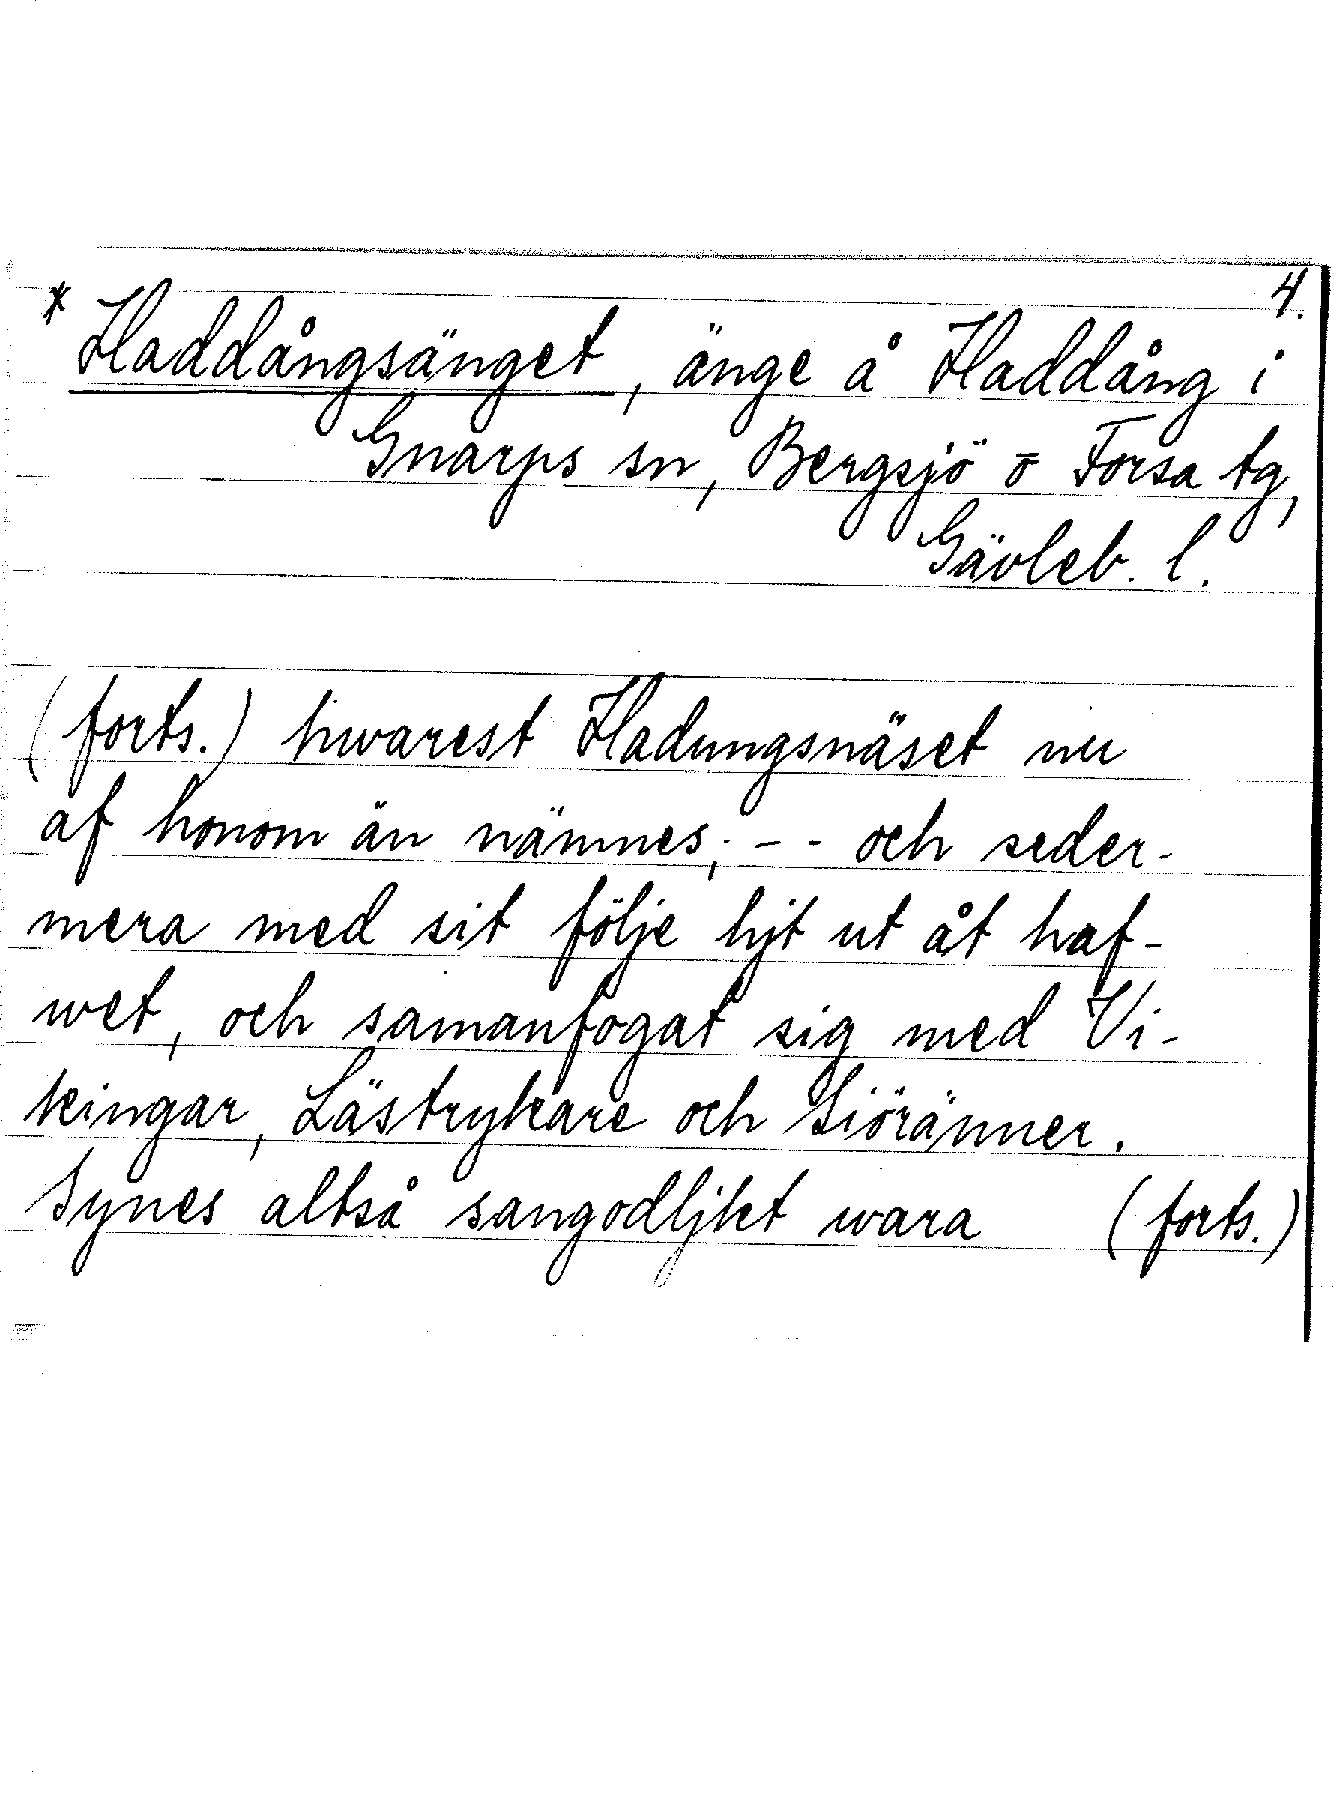 4.
* Haddångsänget, änge å Haddång i
Gnarps sn, Bergsjö o Forsa tg,
Gävleb. l.
(forts.) hwarest Hadungsnäset nu
af honom än nämnes; - - - och seder-
mera med sit följe hjt ut åt haf-
wet, och samanfogat sig med Vi-
kingar, Lästrykare och Siöränner.
Synes altså sangodljkt wara (forts.)